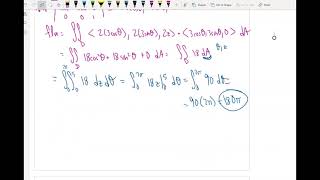 flux = ∬_D <2(3cosθ), 2(3sinθ), 2z> · <3cosθ, 3sinθ, 0> dA
= ∬_D 18cos²θ + 18sin²θ + 0 dA = ∬_D 18 dA
= ∫₀^{2π} ∫₀^5 18 dz dθ = ∫₀^{2π} 18z|₀^5 dθ = ∫₀^{2π} 90 dθ
= 90(2π) = 180π